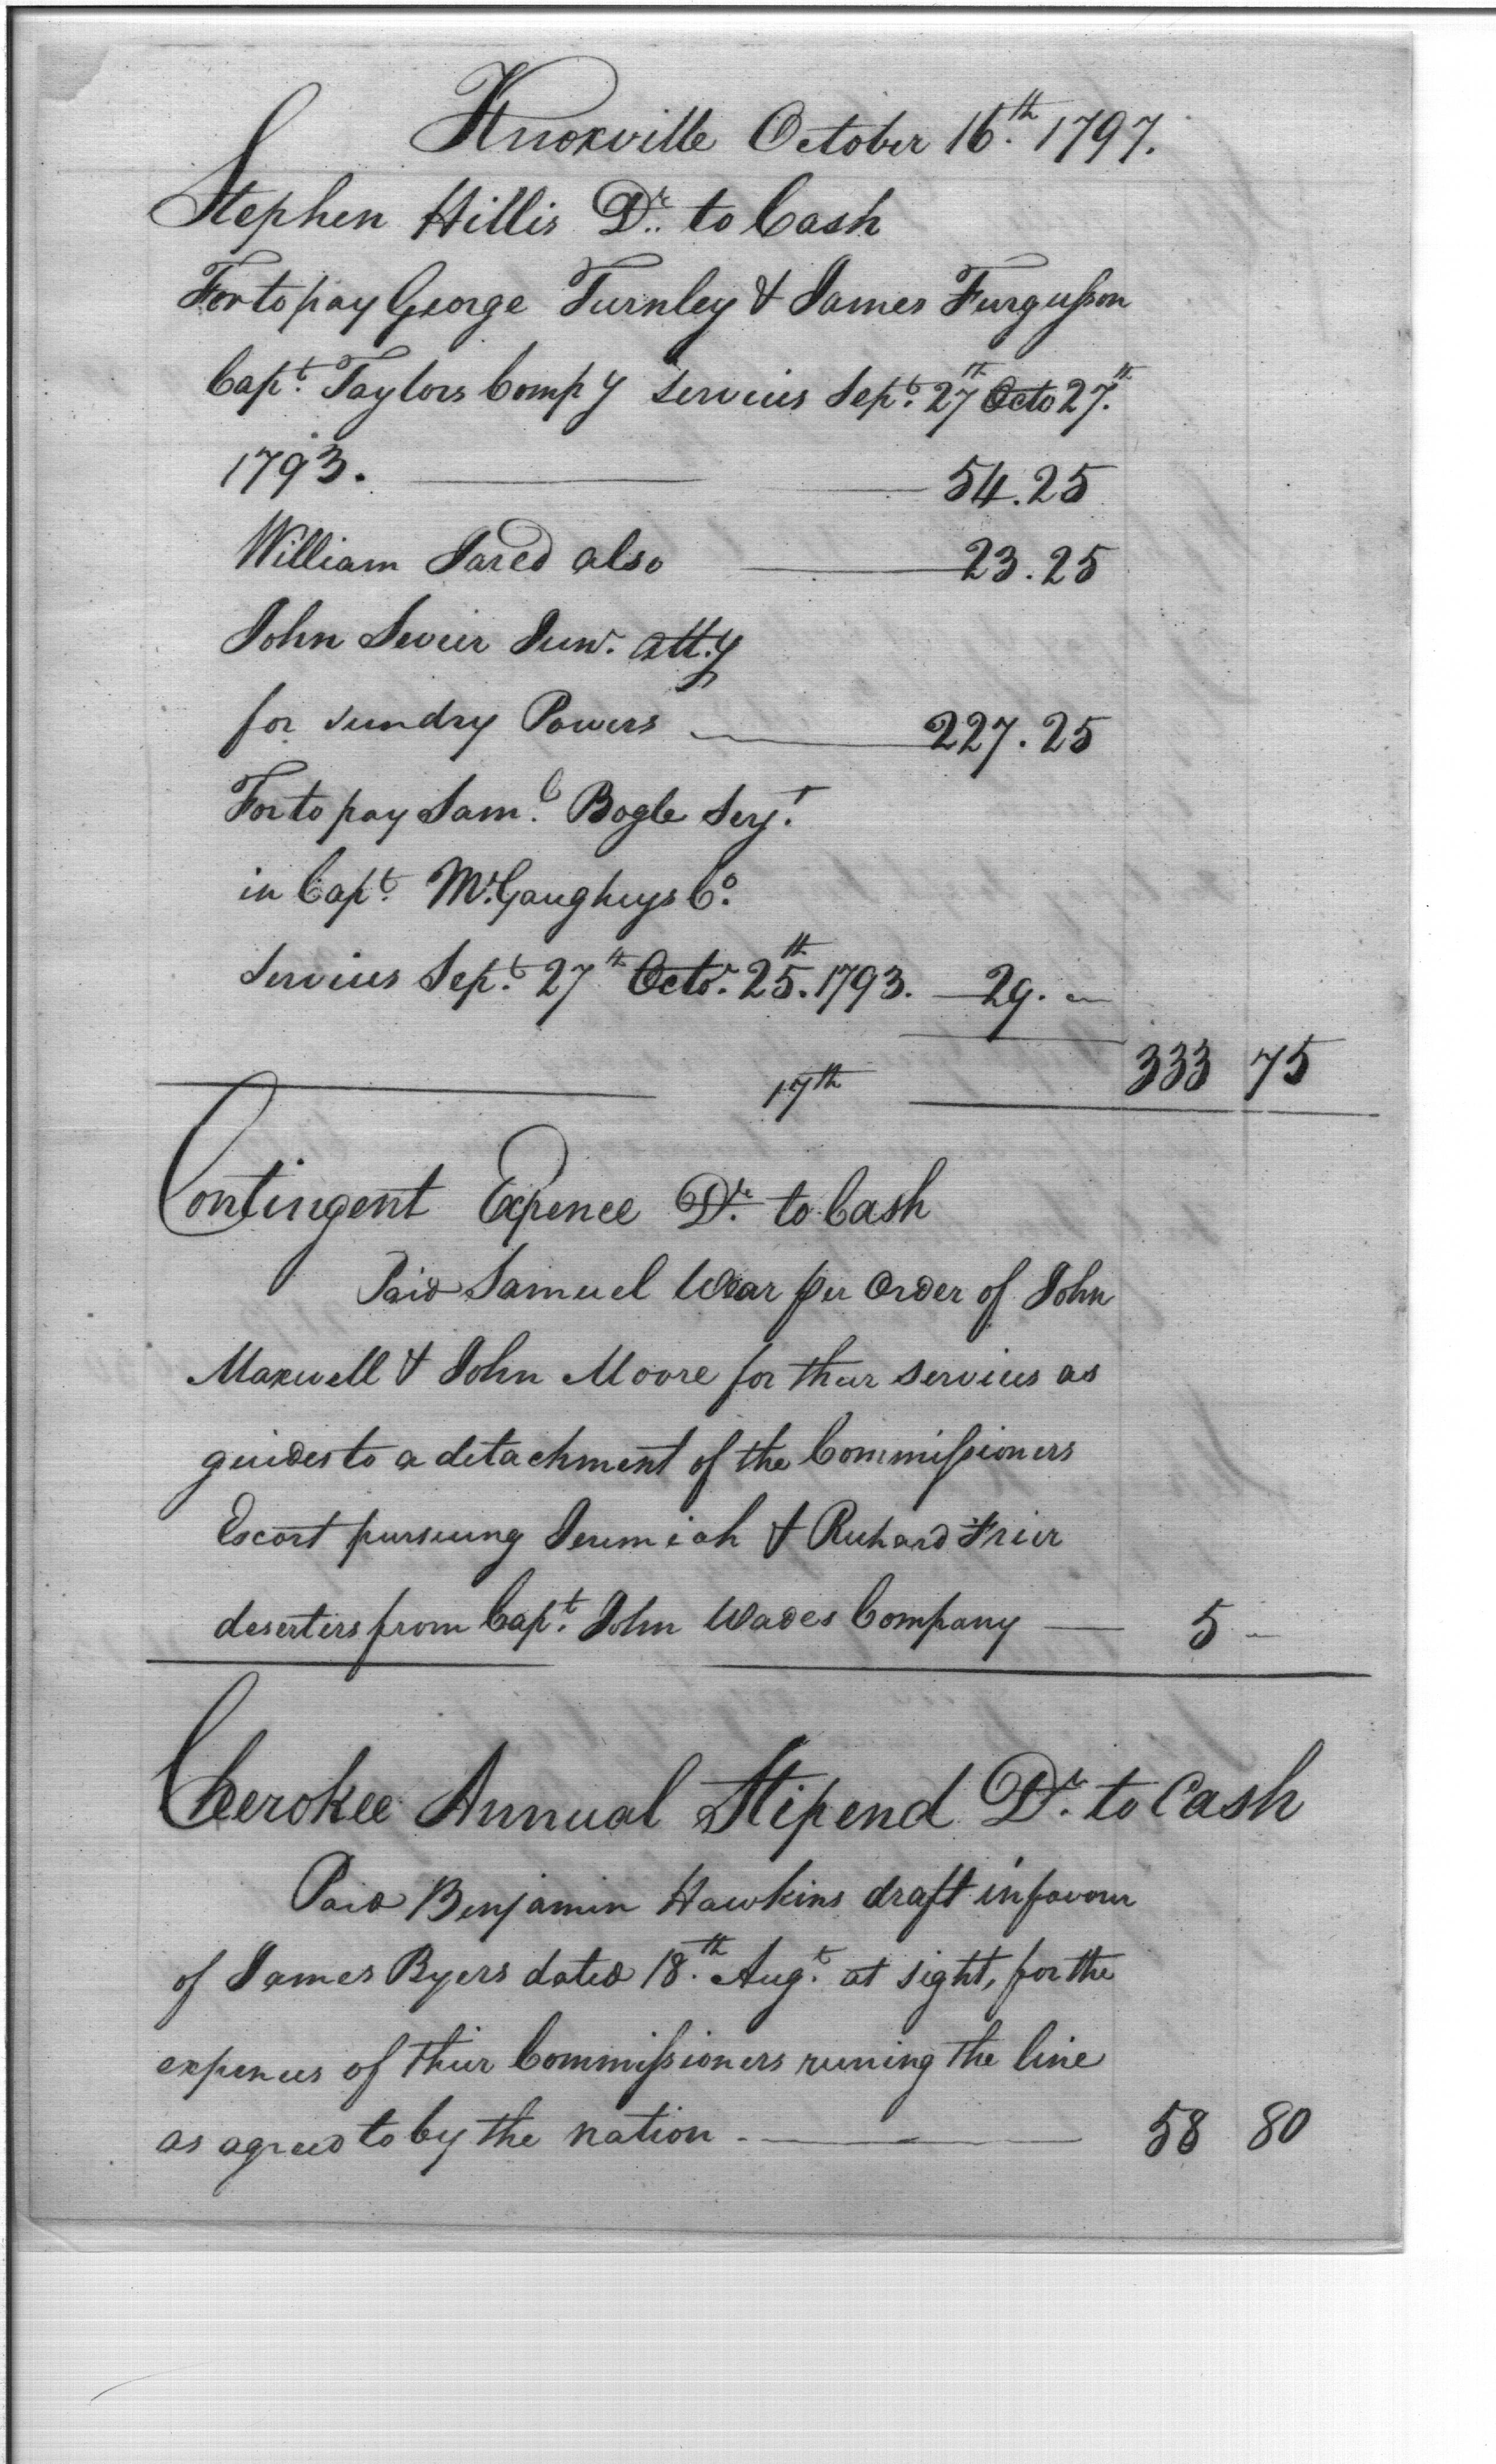 Knoxville October 16th. 1797.
Stephen Hillis Dr. to Cash
For to pay George Turnley & James Fergusson
Capt. Taylors Compy services Sept. 27th Octo 27th.
1793. 54.25
William Jared also 23.25
John Sevier Junr. atty
for sundry Powers 227.25
For to pay Saml. Bogle Serjt.
in Capt. McGaugheys Co.
services Sept. 27th Octor. 25th. 1793. 29. —
333 75
17th
Contingent Expence Dr. to Cash
Paid Samuel Wear per order of John
Maxwell & John Moore for their services as
guides to a detachment of the Commissioners
Escort pursuing Jeremiah & Richard Frier
deserters from Capt. John Wades Company — 5 —
Cherokee Annual Stipend Dr. to Cash
Paid Benjamin Hawkins draft in favour
of James Byers dated 18th. Augt. at sight, for the
expences of their Commissioners runing the line
as agreed to by the nation — 58 80